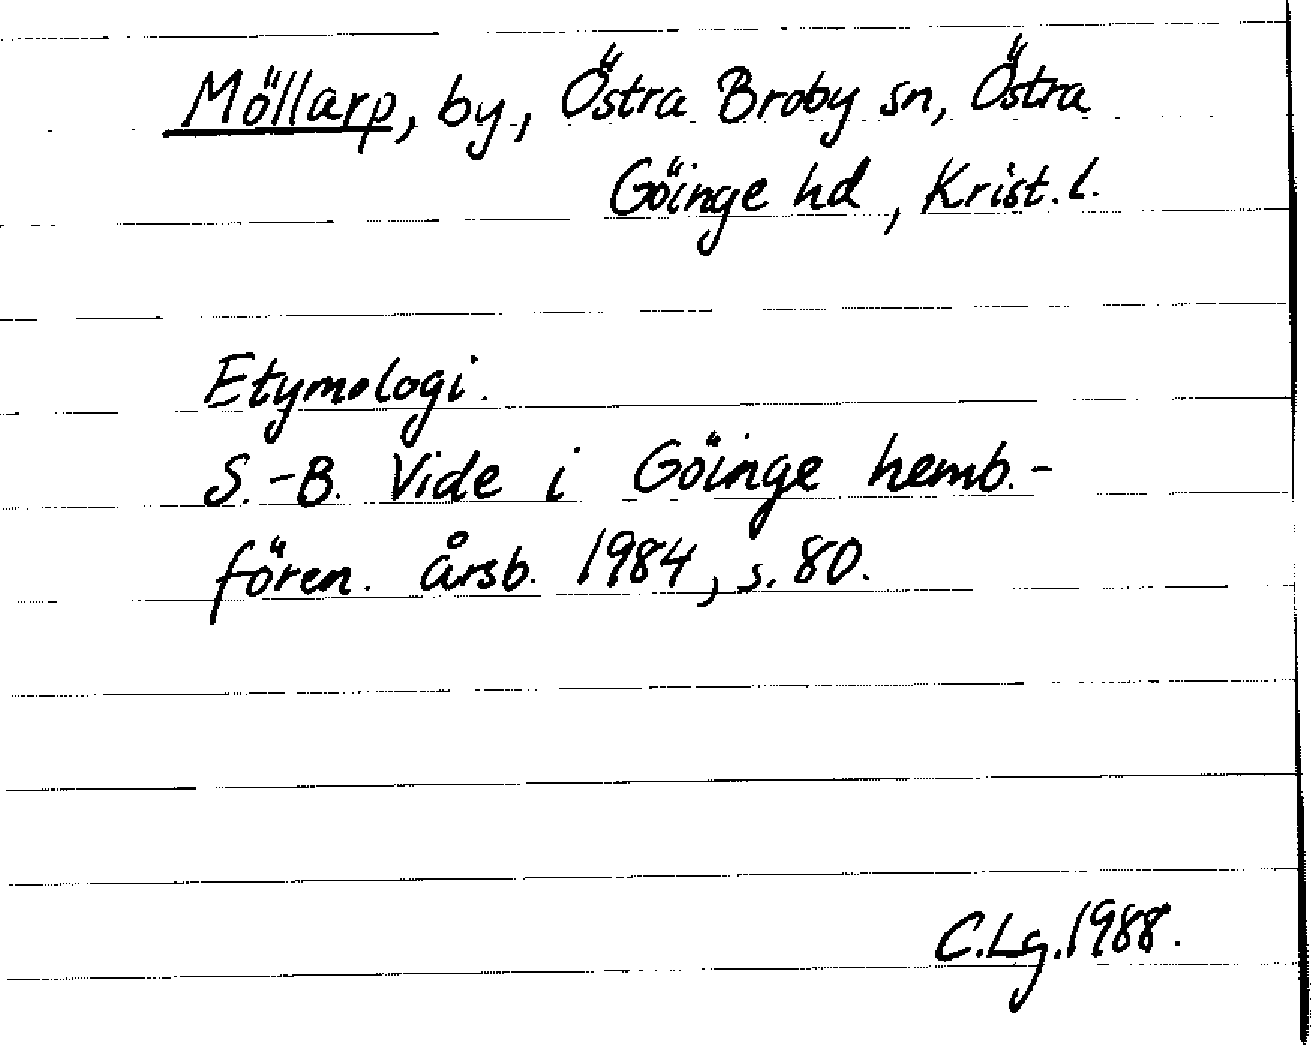 Möllarp, by, Östra Broby sn, Östra
Göinge hd, Krist. l.
Etymologi.
S.-B. Vide i Göinge hemb.-
fören. årsb. 1984, s. 80.
C.Lg.1988.